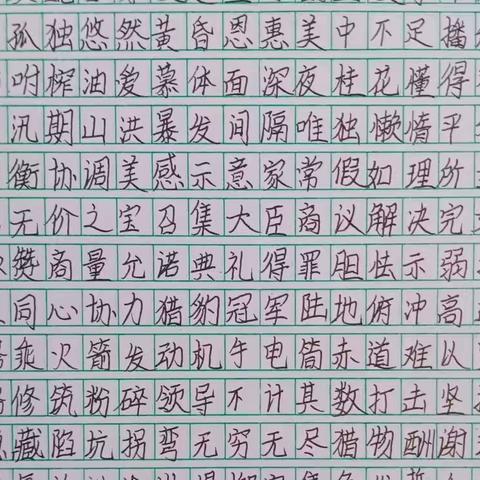 孤独悠然黄昏恩惠美中不足播
咐榨油爱慕体面深夜桂花懂得
汛期山洪暴发间隔唯独懒惰平
衡协调美感示意家常假如理所
无价之宝召集大臣商议解决完
赞商量允诺典礼得罪胆怯示弱
同心协力猎豹冠军陆地俯冲高
乘火箭发动机午电筒赤道难以
修筑粉碎领导不计其数打击坚
藏陷坑拐弯无穷无尽猎物酬谢